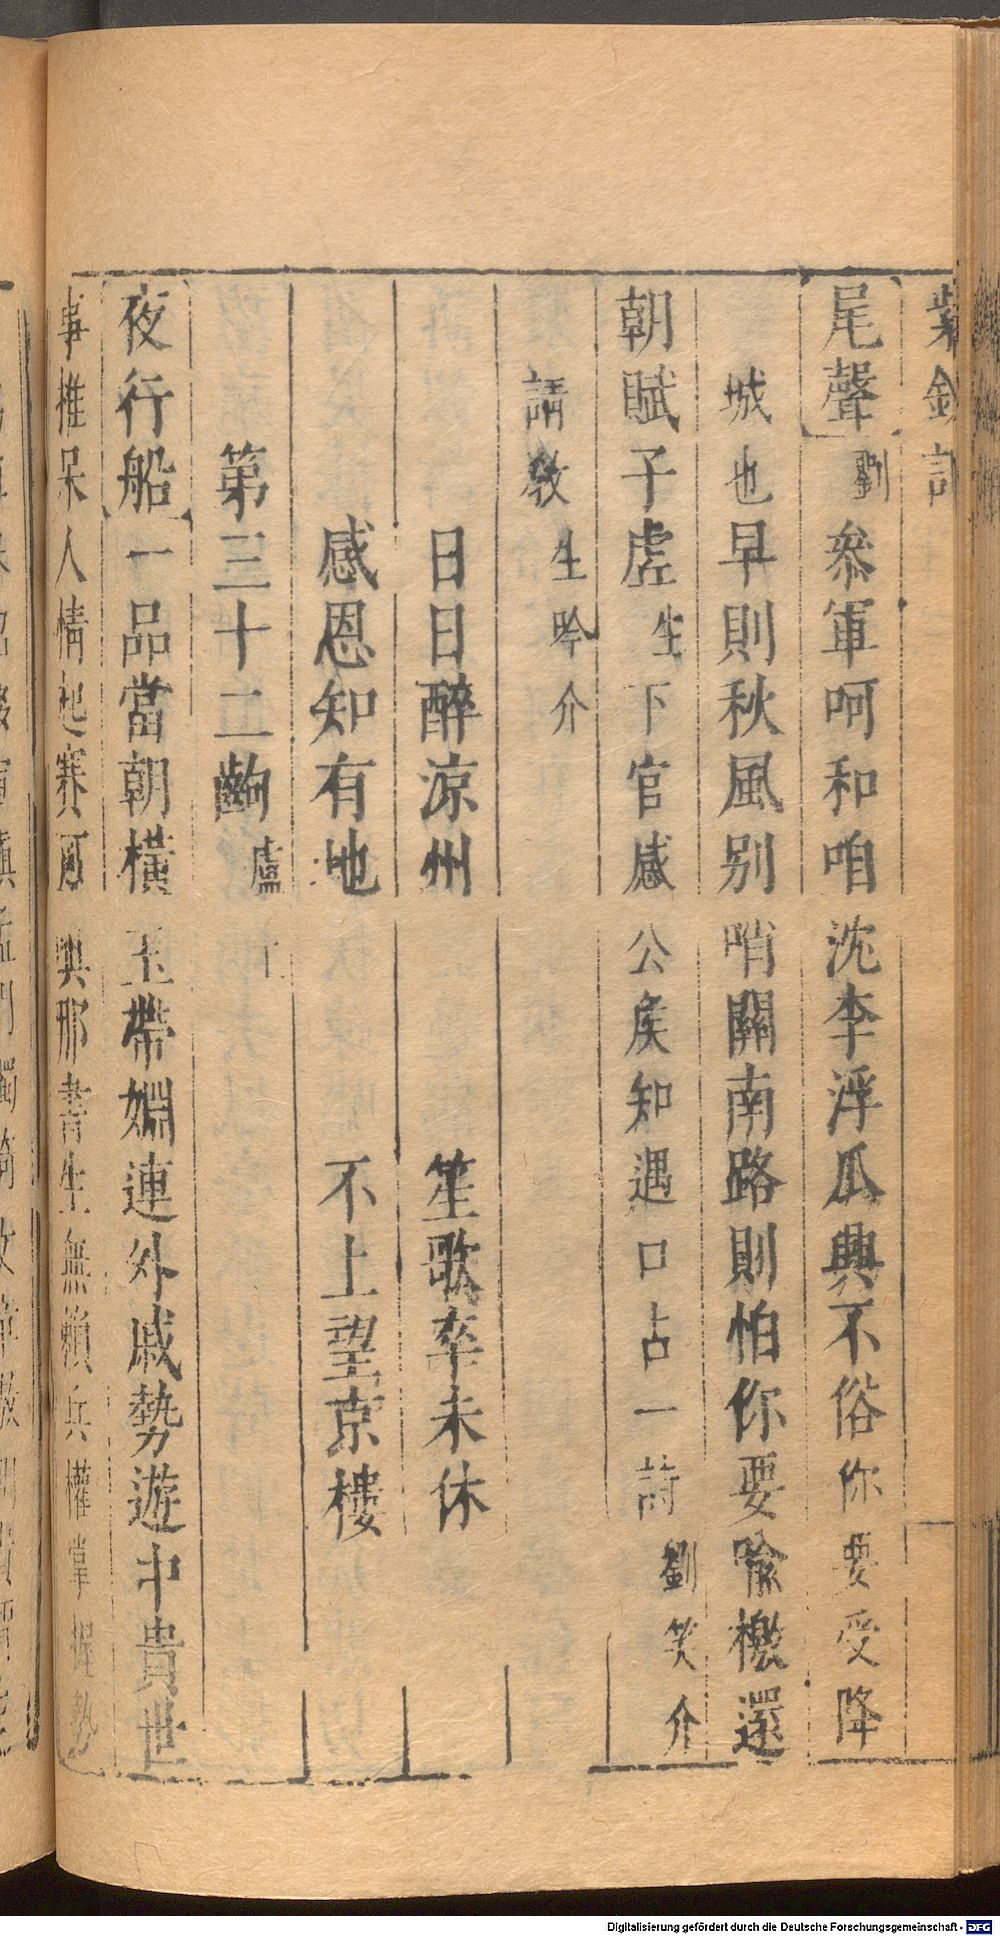 紫釵記
尾聲劉叅軍呵和咱沈李浮瓜興不俗你要受降
城也早則秋風別哨關南路則怕你要喻檄還
朝賦子虛生下官感公矦知遇口占一詩劉笑介
請教生吟介
日日醉涼州 笙歌卒未休
感恩知有地 不上望京樓
第三十二齣盧上
夜行船一品當朝橫玉帶姻連外戚勢遊中貴世
事推呆人情起賽可興那書生無賴兵權掌握勢
Digitalisierung gefördert durch die Deutsche Forschungsgemeinschaft - DFG